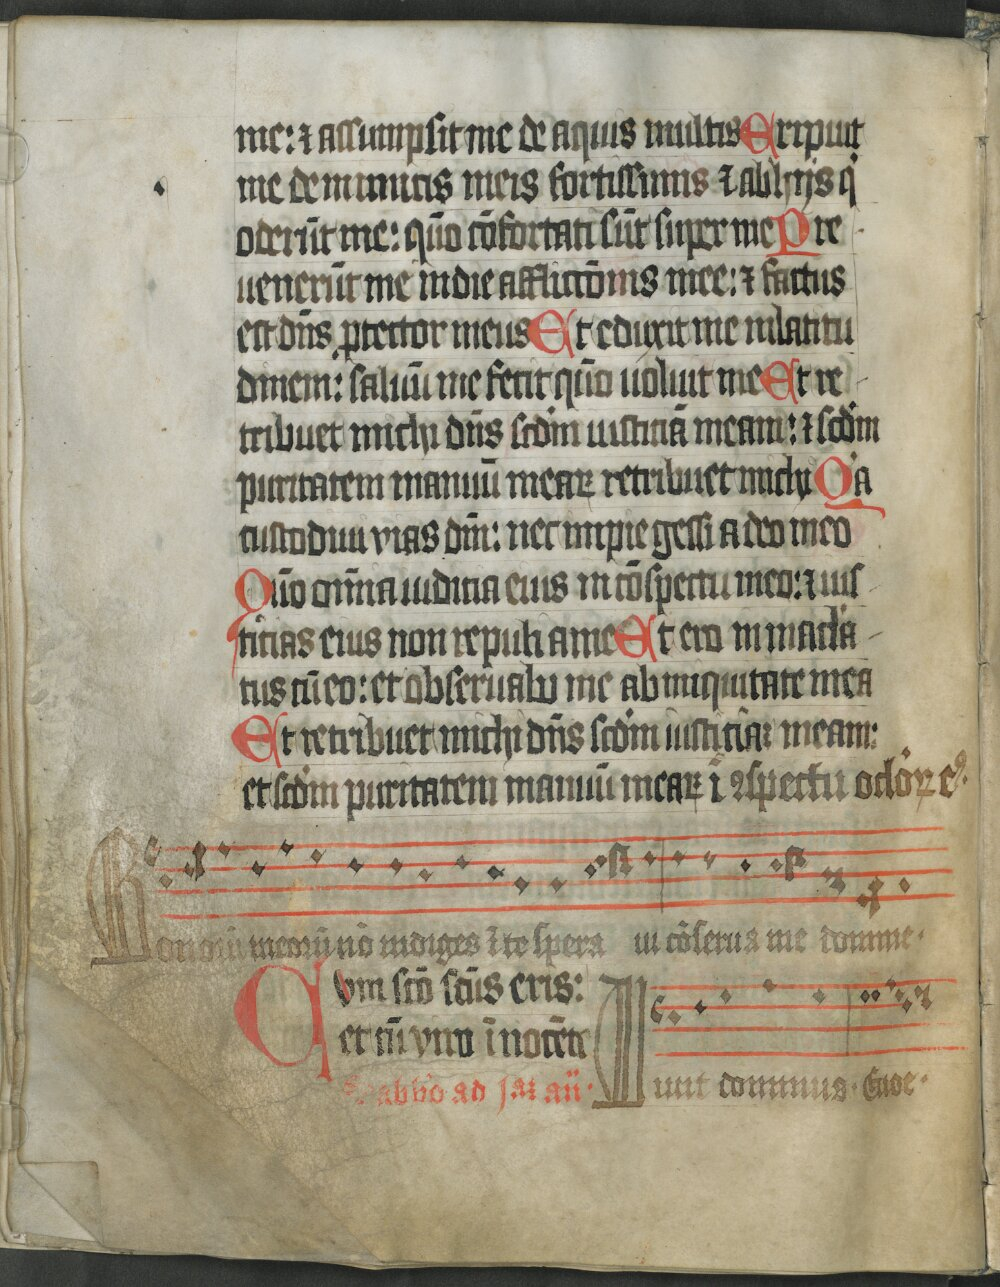 me: ⁊ assumpsit me de aquis multis Eripuit
me de inimicis meis fortissimis ⁊ ab hijs q̇
oderūt me: qm̄o cōfortati sūt super me Pre
uenerūt me in die afflictōnis mee: ⁊ factus
est dn̄s ꝓtector meus Et eduxit me in latitu
dinem: saluū me fecit qm̄o uoluit me Et re
tribuet michi dn̄s scd̄m iusticiā meam: ⁊ scd̄m
puritatem manuū meaꝝ retribuet michi Qa
custodiui vias dn̄i: nec impie gessi a deo meo
Qm̄o om̄ia iudicia eius in cōspectu meo: ⁊ ius
ticias eius non repuli a me Et ero inmacla
tus cū eo: et obseruabo me ab iniquitate mea
Et retribuet michi dn̄s scd̄m iusticiā meam:
et scd̄m puritatem manuū meaꝝ ī ꝯspectu oclōꝝ eꝰ
Bonoꝝ meoꝝ nō indiges ī te spera ui cōserua me domine
Cvm scō scūs eris:
et cū viro īnocēte
sabbo ad an̄
uit dominus Euoe